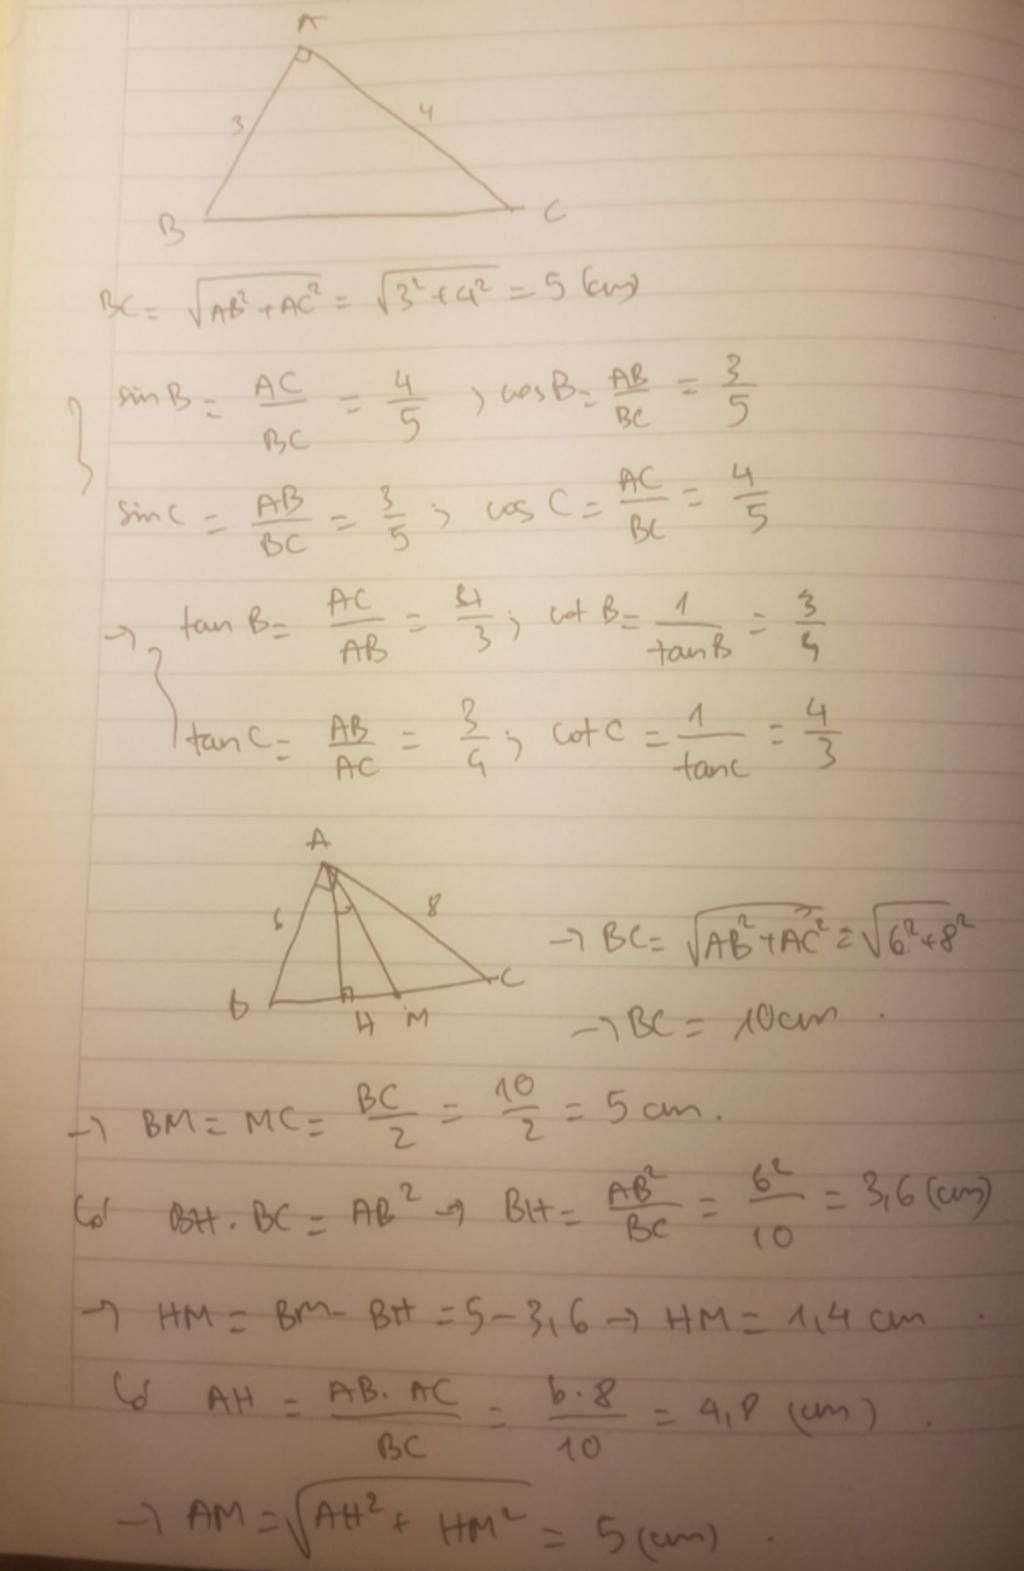 A
3 4
B C
BC = √(AB² + AC²) = √(3² + 4²) = 5 (cm)
sin B = AC/BC = 4/5 ; cos B = AB/BC = 3/5
sin C = AB/BC = 3/5 ; cos C = AC/BC = 4/5
→ tan B = AC/AB = 4/3 ; cot B = 1/tan B = 3/4
tan C = AB/AC = 3/4 ; cot C = 1/tan C = 4/3
A
6 8
B H M C
→ BC = √(AB² + AC²) = √(6² + 8²)
→ BC = 10 cm .
→ BM = MC = BC/2 = 10/2 = 5 cm .
Có BH . BC = AB² → BH = AB²/BC = 6²/10 = 3,6 (cm)
→ HM = BM - BH = 5 - 3,6 → HM = 1,4 cm .
Có AH = AB . AC/BC = 6 . 8/10 = 4,8 (cm) .
→ AM = √(AH² + HM²) = 5 (cm) .